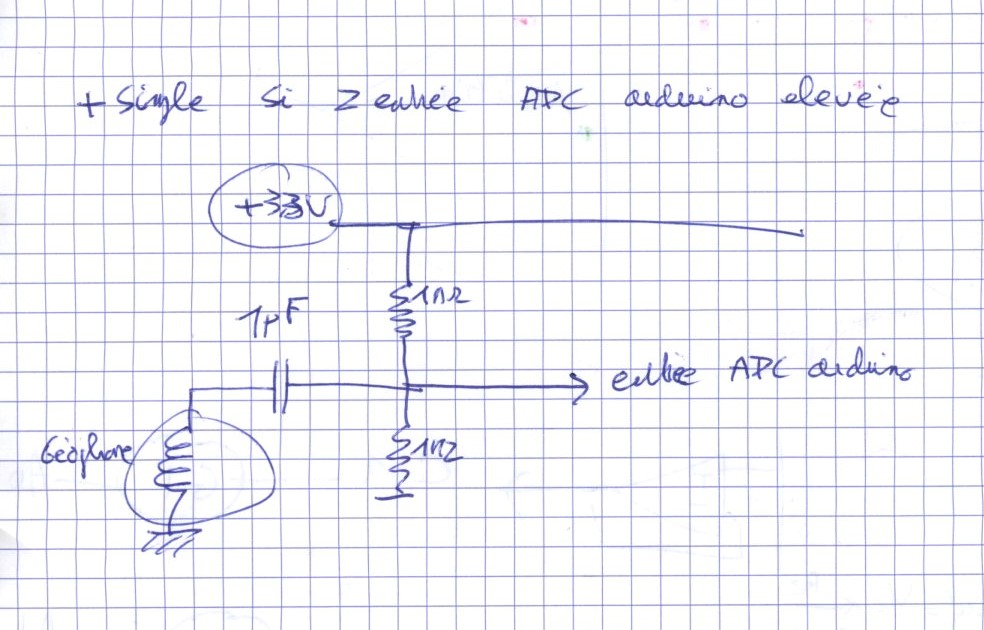 + simple si Z entrée ADC arduino elevée
+3,3V
1MΩ
1µF
entrée ADC arduino
Géophone
1MΩ